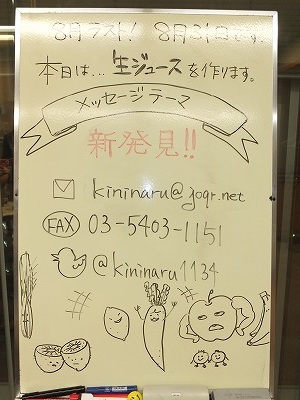 8月ラスト! 8月31日です。
本日は…生ジュースを作ります。
メッセージテーマ
新発見!!
kininaru@joqr.net
FAX 03-5403-1151
@kininaru1134